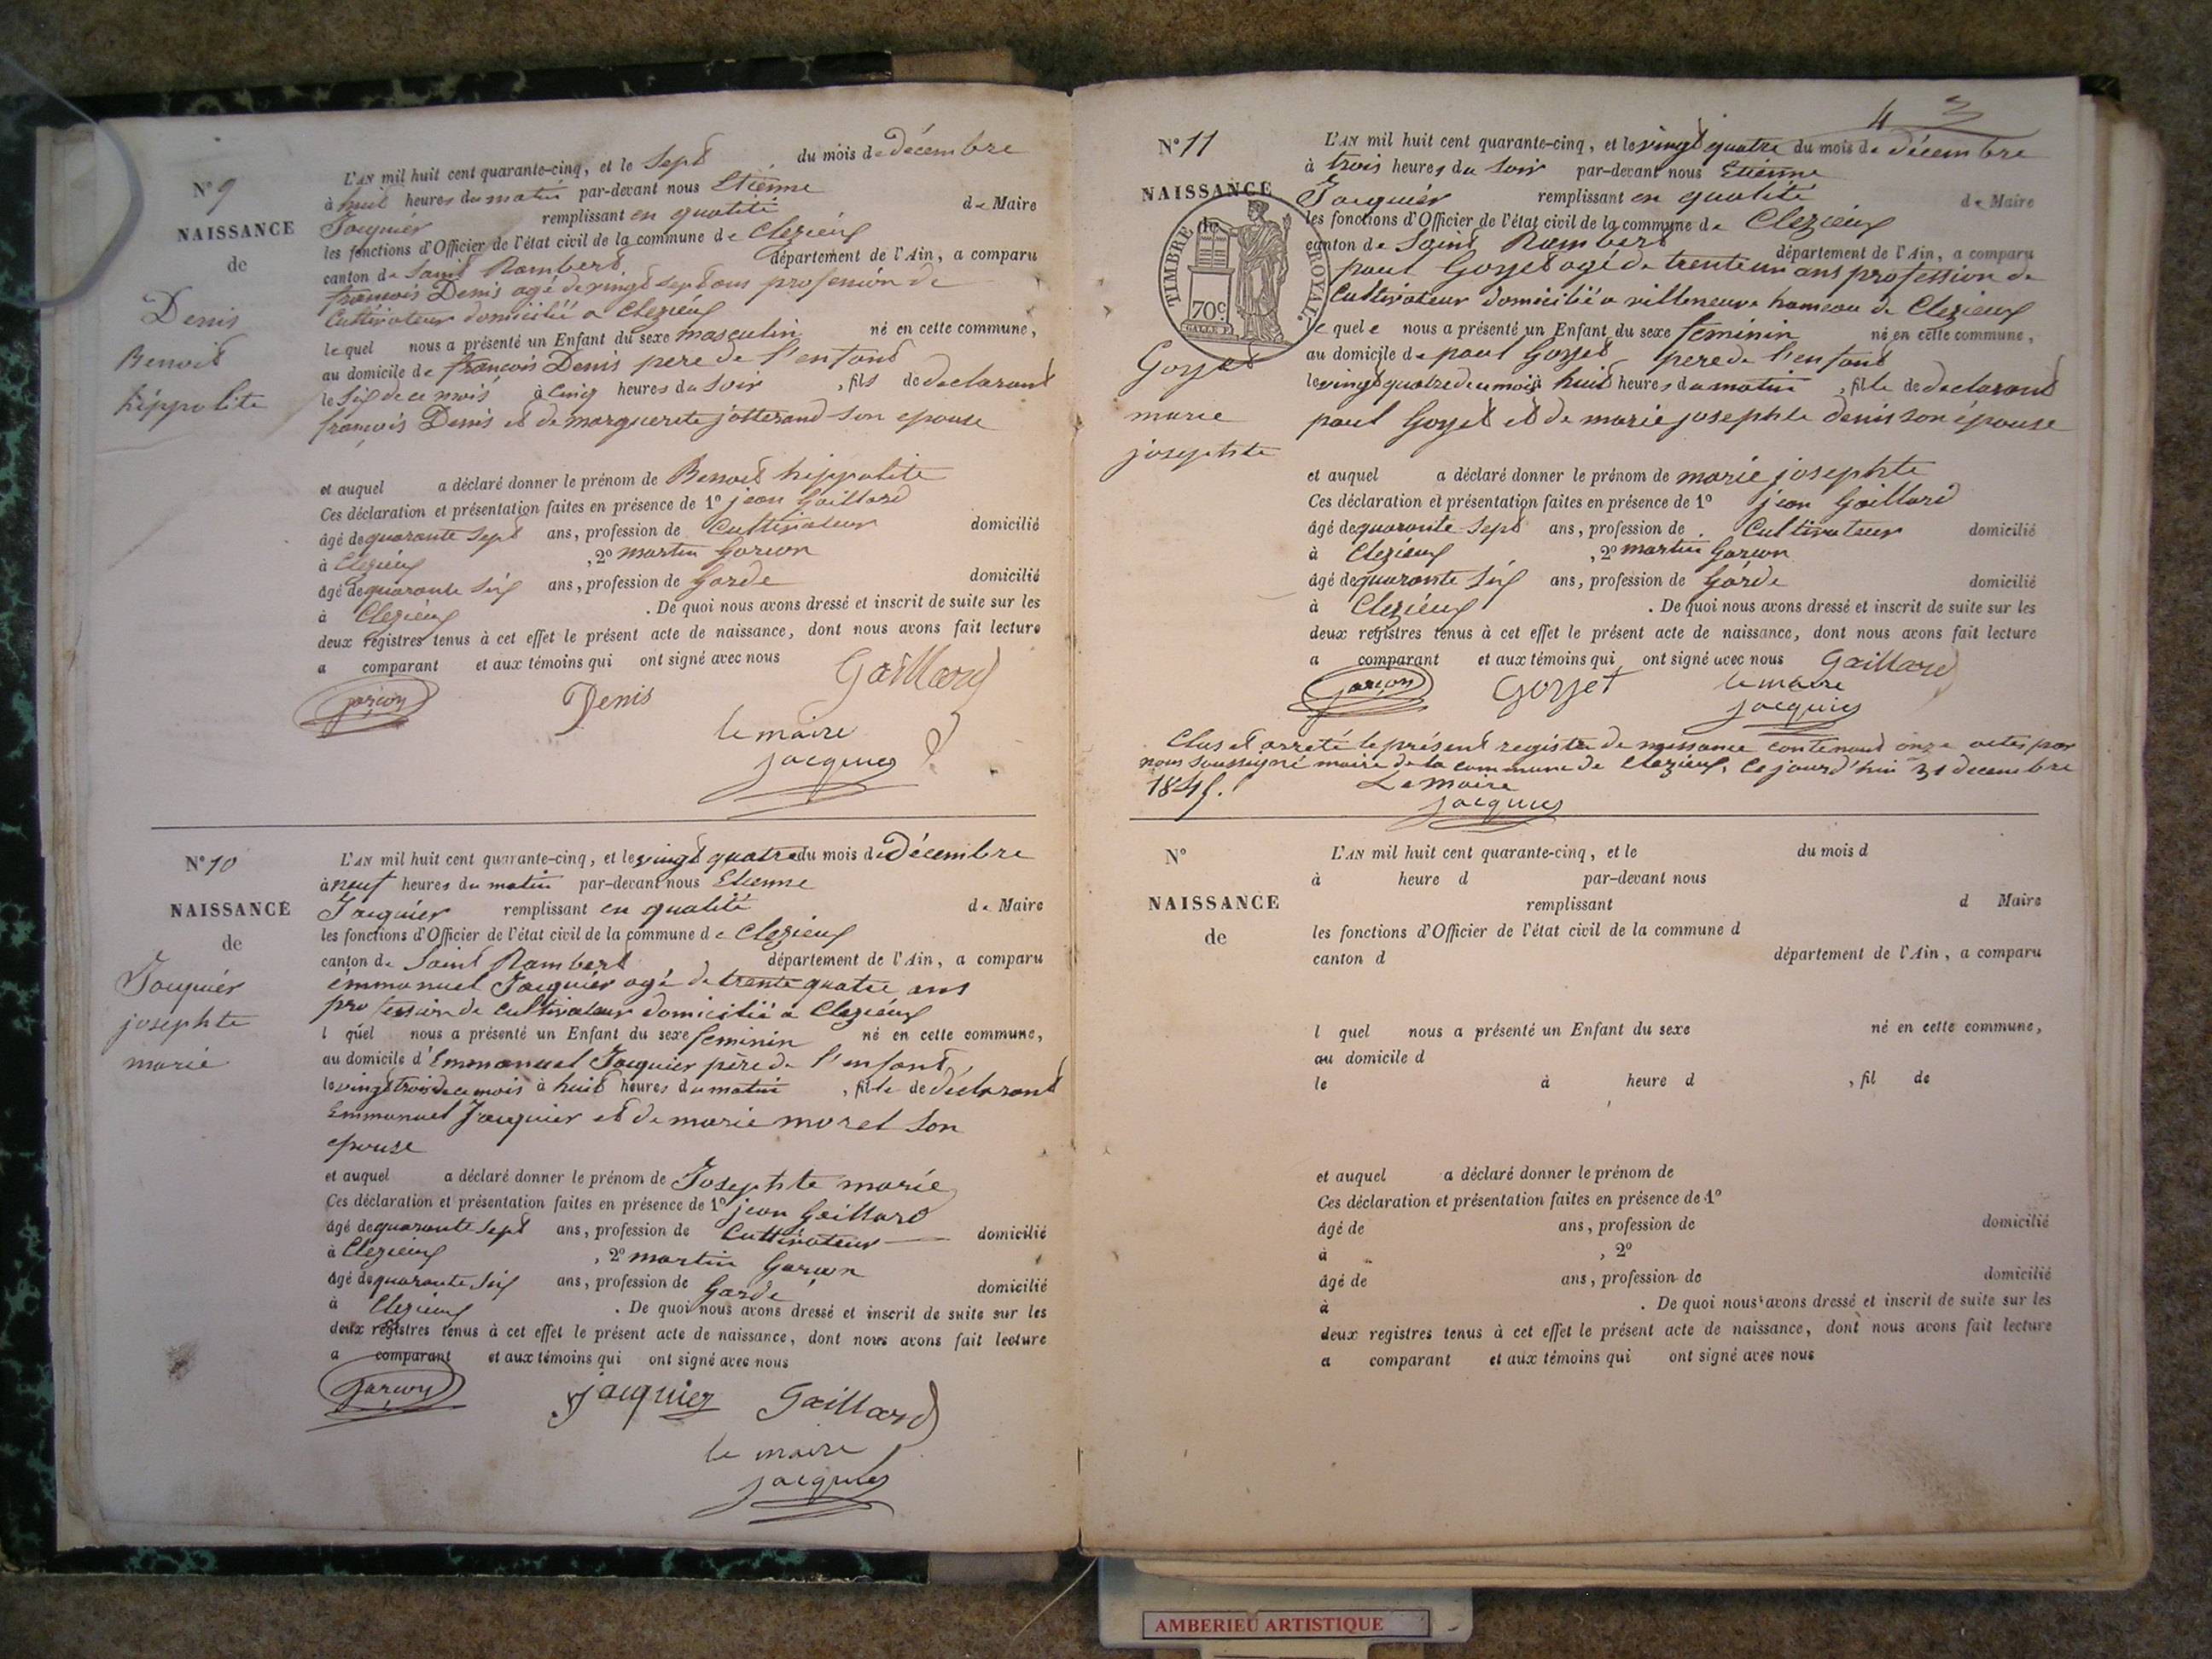 N° 9
NAISSANCE
de
Denis
Benoit
hippolite
L'AN mil huit cent quarante-cinq, et le sept du mois de décembre
à huit heures du matin par-devant nous Etienne
Jacquier remplissant en qualité de Maire
les fonctions d'Officier de l'état civil de la commune de Clezieux
canton de Saint Rambert département de l'Ain, a comparu
francois Denis agé de vingt sept ans profession de
Cultivateur domicilié a Clezieux
le quel nous a présenté un Enfant du sexe masculin né en cette commune,
au domicile de francois Denis pere de l'enfant
le six de ce mois à cinq heures du soir, fils de declarant
francois Denis et de marguerite josserand son epouse
et auquel a déclaré donner le prénom de Benoit hippolite
Ces déclaration et présentation faites en présence de 1° jean Gaillard
âgé de quarante sept ans, profession de Cultivateur domicilié
à Clezieux, 2° martin Garcon
âgé de quarante six ans, profession de Garde domicilié
à Clezieux. De quoi nous avons dressé et inscrit de suite sur les
deux registres tenus à cet effet le présent acte de naissance, dont nous avons fait lecture
a comparant et aux témoins qui ont signé avec nous
Garcon Denis Gaillard
le maire
jacquier
N° 10
NAISSANCE
de
Jacquier
josephte
marie
L'AN mil huit cent quarante-cinq, et le vingt quatre du mois de Décembre
à neuf heures du matin par-devant nous Etienne
Jacquier remplissant en qualité de Maire
les fonctions d'Officier de l'état civil de la commune de Clezieux
canton de Saint Rambert département de l'Ain, a comparu
émmanuel Jacquier agé de trente quatre ans
profession de cultivateur domicilié a Clezieux
l quel nous a présenté un Enfant du sexe feminin né en cette commune,
au domicile d'Emmanuel Jacquier père de l'enfant
le vingt trois de ce mois à huit heures du matin, fille de declarant
Emmanuel Jacquier et de marie morel son
epouse
et auquel a déclaré donner le prénom de Josephte marie
Ces déclaration et présentation faites en présence de 1° jean Gaillard
âgé de quarante sept ans, profession de Cultivateur domicilié
à Clezieux, 2° martin Garcon
âgé de quarante six ans, profession de Garde domicilié
à Clezieux. De quoi nous avons dressé et inscrit de suite sur les
deux registres tenus à cet effet le présent acte de naissance, dont nous avons fait lecture
a comparant et aux témoins qui ont signé avec nous
Garcon jacquier Gaillard
le maire
jacquier
4 3
N° 11
NAISSANCE
de
TIMBRE ROYAL.
70c.
Goyet
marie
josephte
L'AN mil huit cent quarante-cinq, et le vingt quatre du mois de décembre
à trois heures du soir par-devant nous Etienne
Jacquier remplissant en qualité de Maire
les fonctions d'Officier de l'état civil de la commune de Clezieux
canton de Saint Rambert département de l'Ain, a comparu
paul Goyet agé de trente un ans profession de
Cultivateur domicilié a villeneuve hameau de Clezieux
le quel e nous a présenté un Enfant du sexe feminin né en cette commune,
au domicile de paul Goyet pere de l'enfant
le vingt quatre de ce mois à huit heures du matin, fille de declarant
paul Goyet et de marie josephte denis son épouse
et auquel a déclaré donner le prénom de marie josephte
Ces déclaration et présentation faites en présence de 1° jean Gaillard
âgé de quarante sept ans, profession de Cultivateur domicilié
à Clezieux, 2° martin Garcon
âgé de quarante six ans, profession de Garde domicilié
à Clezieux. De quoi nous avons dressé et inscrit de suite sur les
deux registres tenus à cet effet le présent acte de naissance, dont nous avons fait lecture
a comparant et aux témoins qui ont signé avec nous Gaillard
Garçon Goyet le maire
jacquier
Clos et arreté le présent registre de naissance contenant onze actes par
nous soussigné maire de la commune de Clezieux. Ce jourd'hui 31 decembre
1845. Le Maire
jacquier
N°
NAISSANCE
de
L'AN mil huit cent quarante-cinq, et le du mois d
à heure d par-devant nous
remplissant d Maire
les fonctions d'Officier de l'état civil de la commune d
canton d département de l'Ain, a comparu
l quel nous a présenté un Enfant du sexe né en cette commune,
au domicile d
le à heure d, fil de
et auquel a déclaré donner le prénom de
Ces déclaration et présentation faites en présence de 1°
âgé de ans, profession de domicilié
à, 2°
âgé de ans, profession de domicilié
à. De quoi nous avons dressé et inscrit de suite sur les
deux registres tenus à cet effet le présent acte de naissance, dont nous avons fait lecture
a comparant et aux témoins qui ont signé avec nous
AMBERIEU ARTISTIQUE